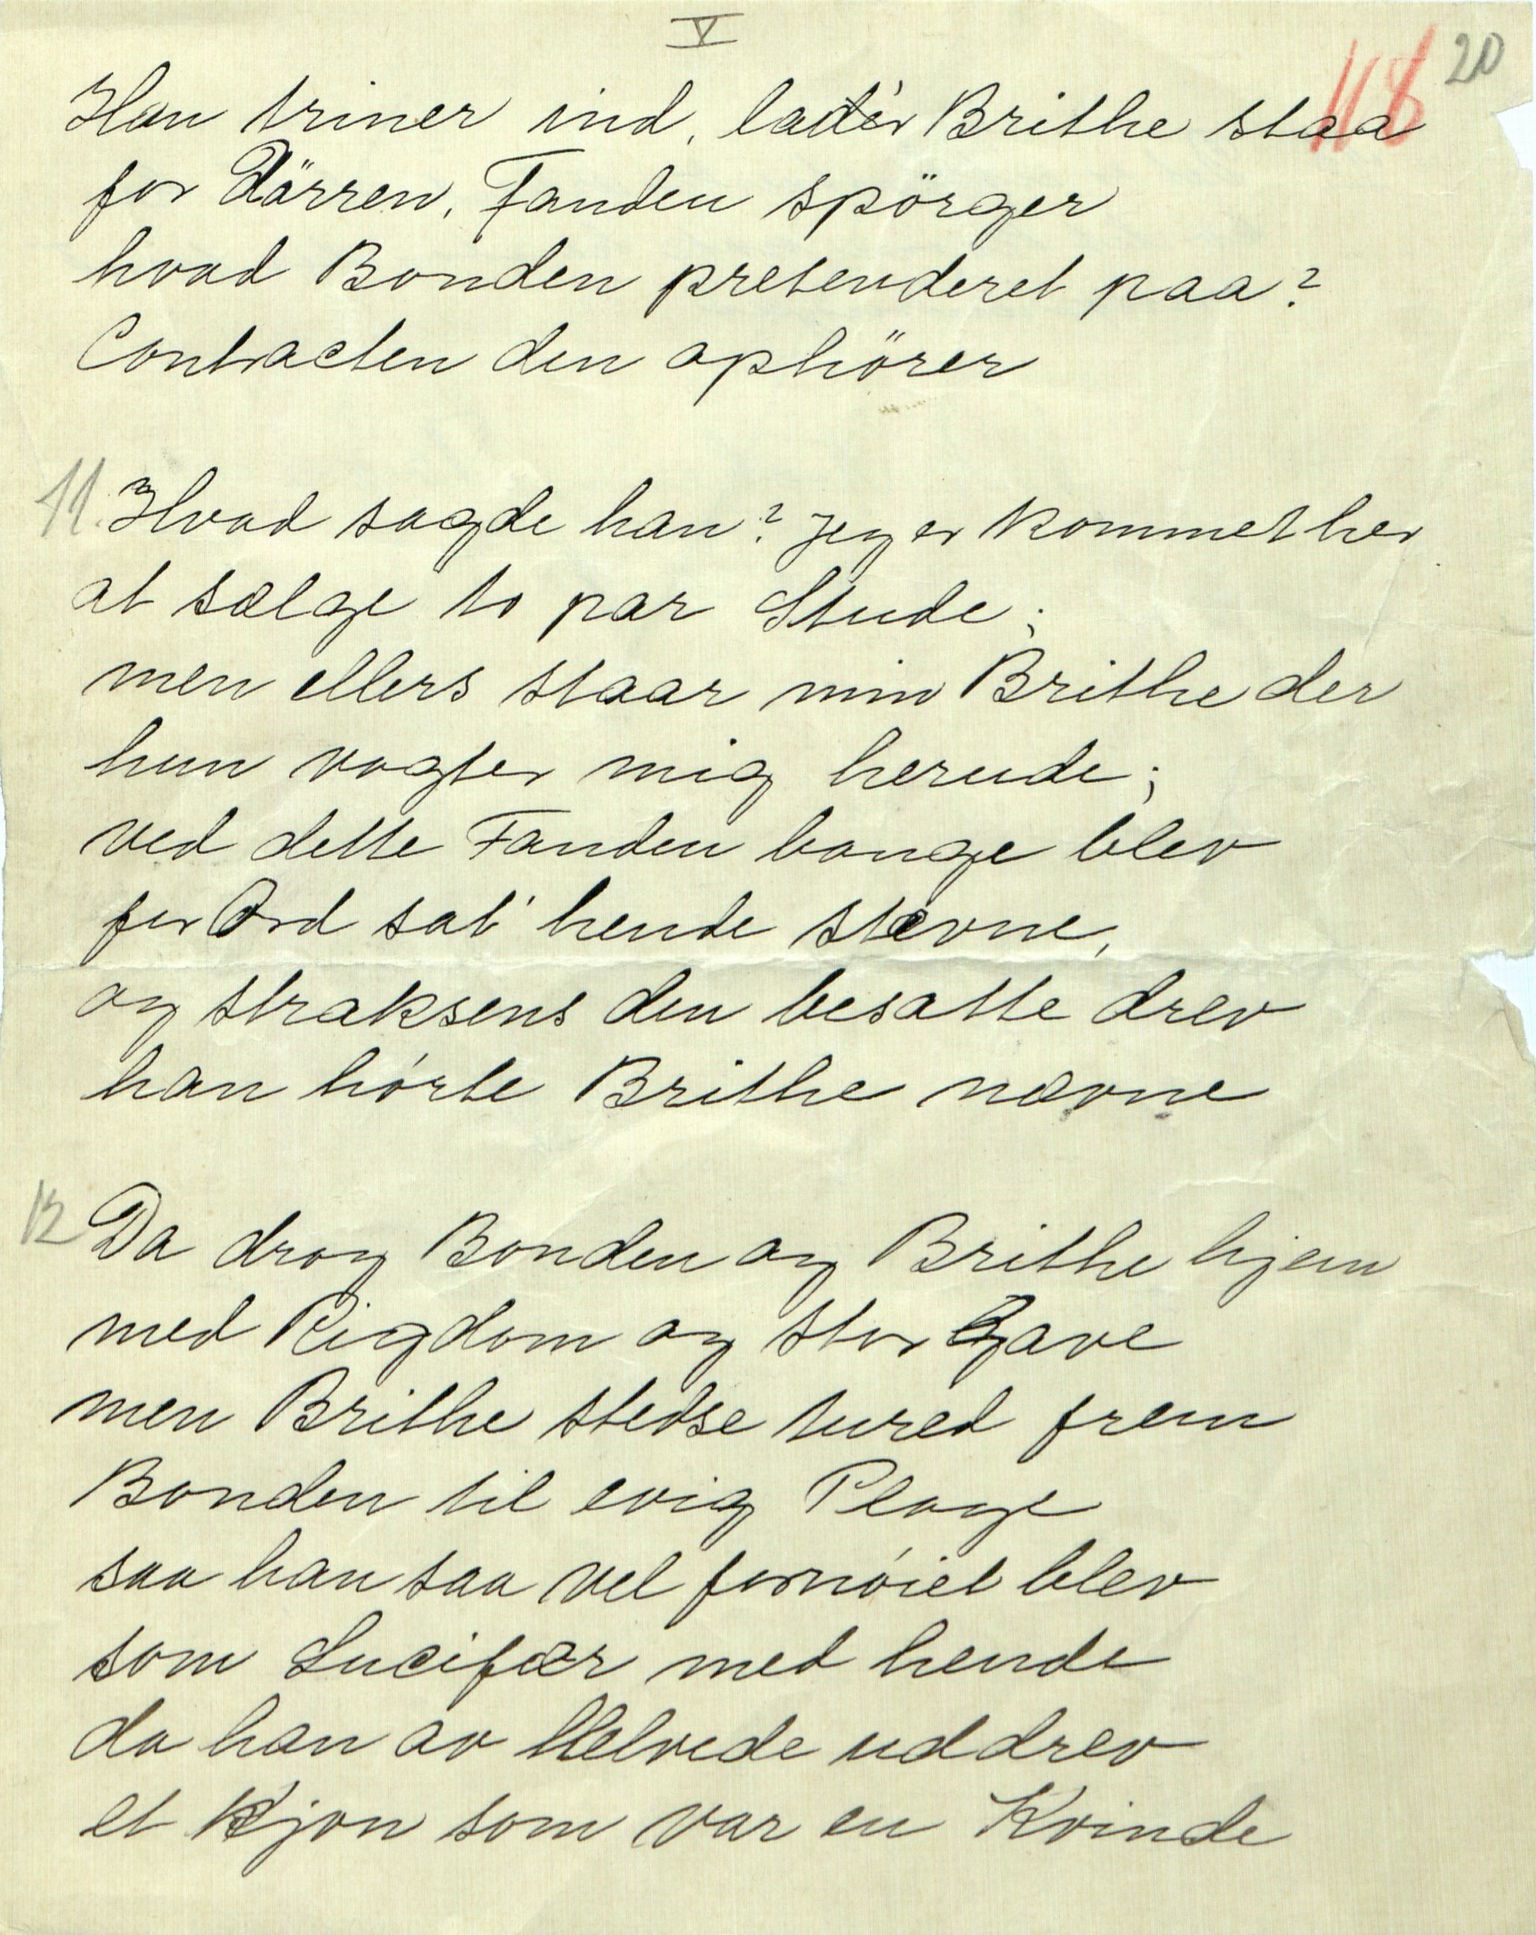 V
118 20
Han triner ind, lad'er Brithe staa
for Därren, Fanden spörger
hvad Bonden pretenderet paa?
Contracten den ophörer
11. Hvad sagde han? jeg er kommet her
at sælge to par Stude;
men ellers staar min Brithe der
hun vogter mig herude;
ved dette Fanden bange blev
for Ord sat' hende stævne,
og straksens den besatte drev
han hórte Brithe nævne
12 Da drog Bonden og Brithe hjem
med Rigdom og stor Gave
men Brithe stedse tured frem
Bonden til evig Plage
saa han saa vel fornóiet blev
som Lucifær med hende
da han av Helvede uddrev
et Kjon som var en Kvinde